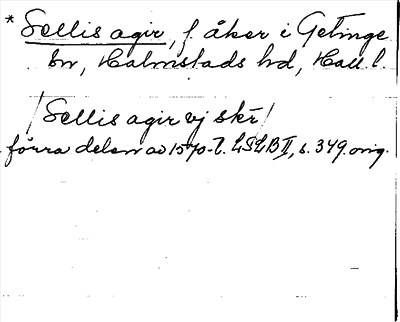 * Sellis agir, f. åker i Getinge
sn, Halmstads hd, Hall. l.
/Sellis agir ej skr/
förra delen av 1570-t. LSLB II, s. 349. orig.